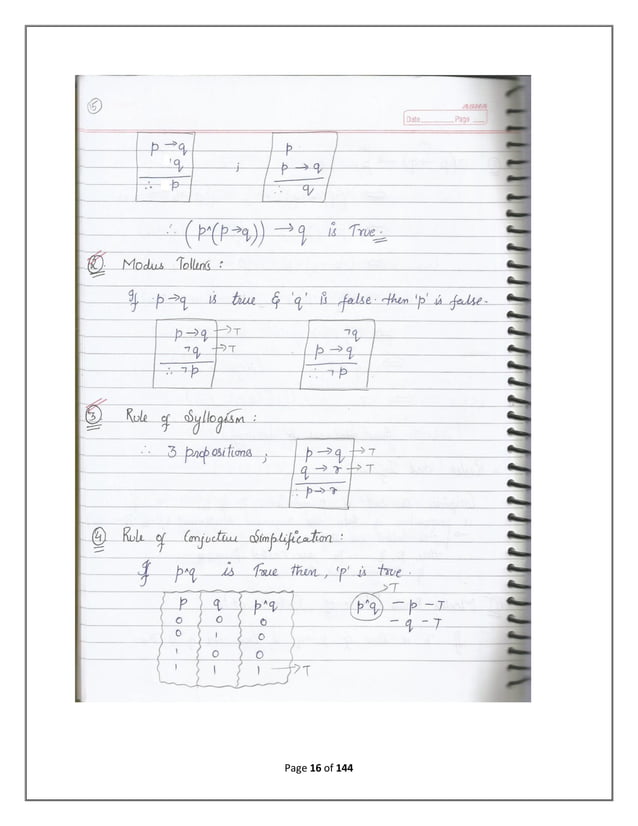 5
ABHA
Date Page
p →q ; p
q p → q
∴ p ∴ q
∴ (p^(p→q)) → q is True.
2. Modus Tollens :
If p→q is true & 'q' is false. then 'p' is false.
p→q →T ¬q
¬q →T p →q
∴ ¬p ∴ ¬p
3 Rule of Syllogism :
∴ 3 propositions ; p → q → T
q → r → T
∴ p→r
4 Rule of Conjuctive Simplification :
If p^q is True then, 'p' is true.
→T
p q p^q p^q – p – T
0 0 0 – q – T
0 1 0
1 0 0
1 1 1 →T
Page 16 of 144